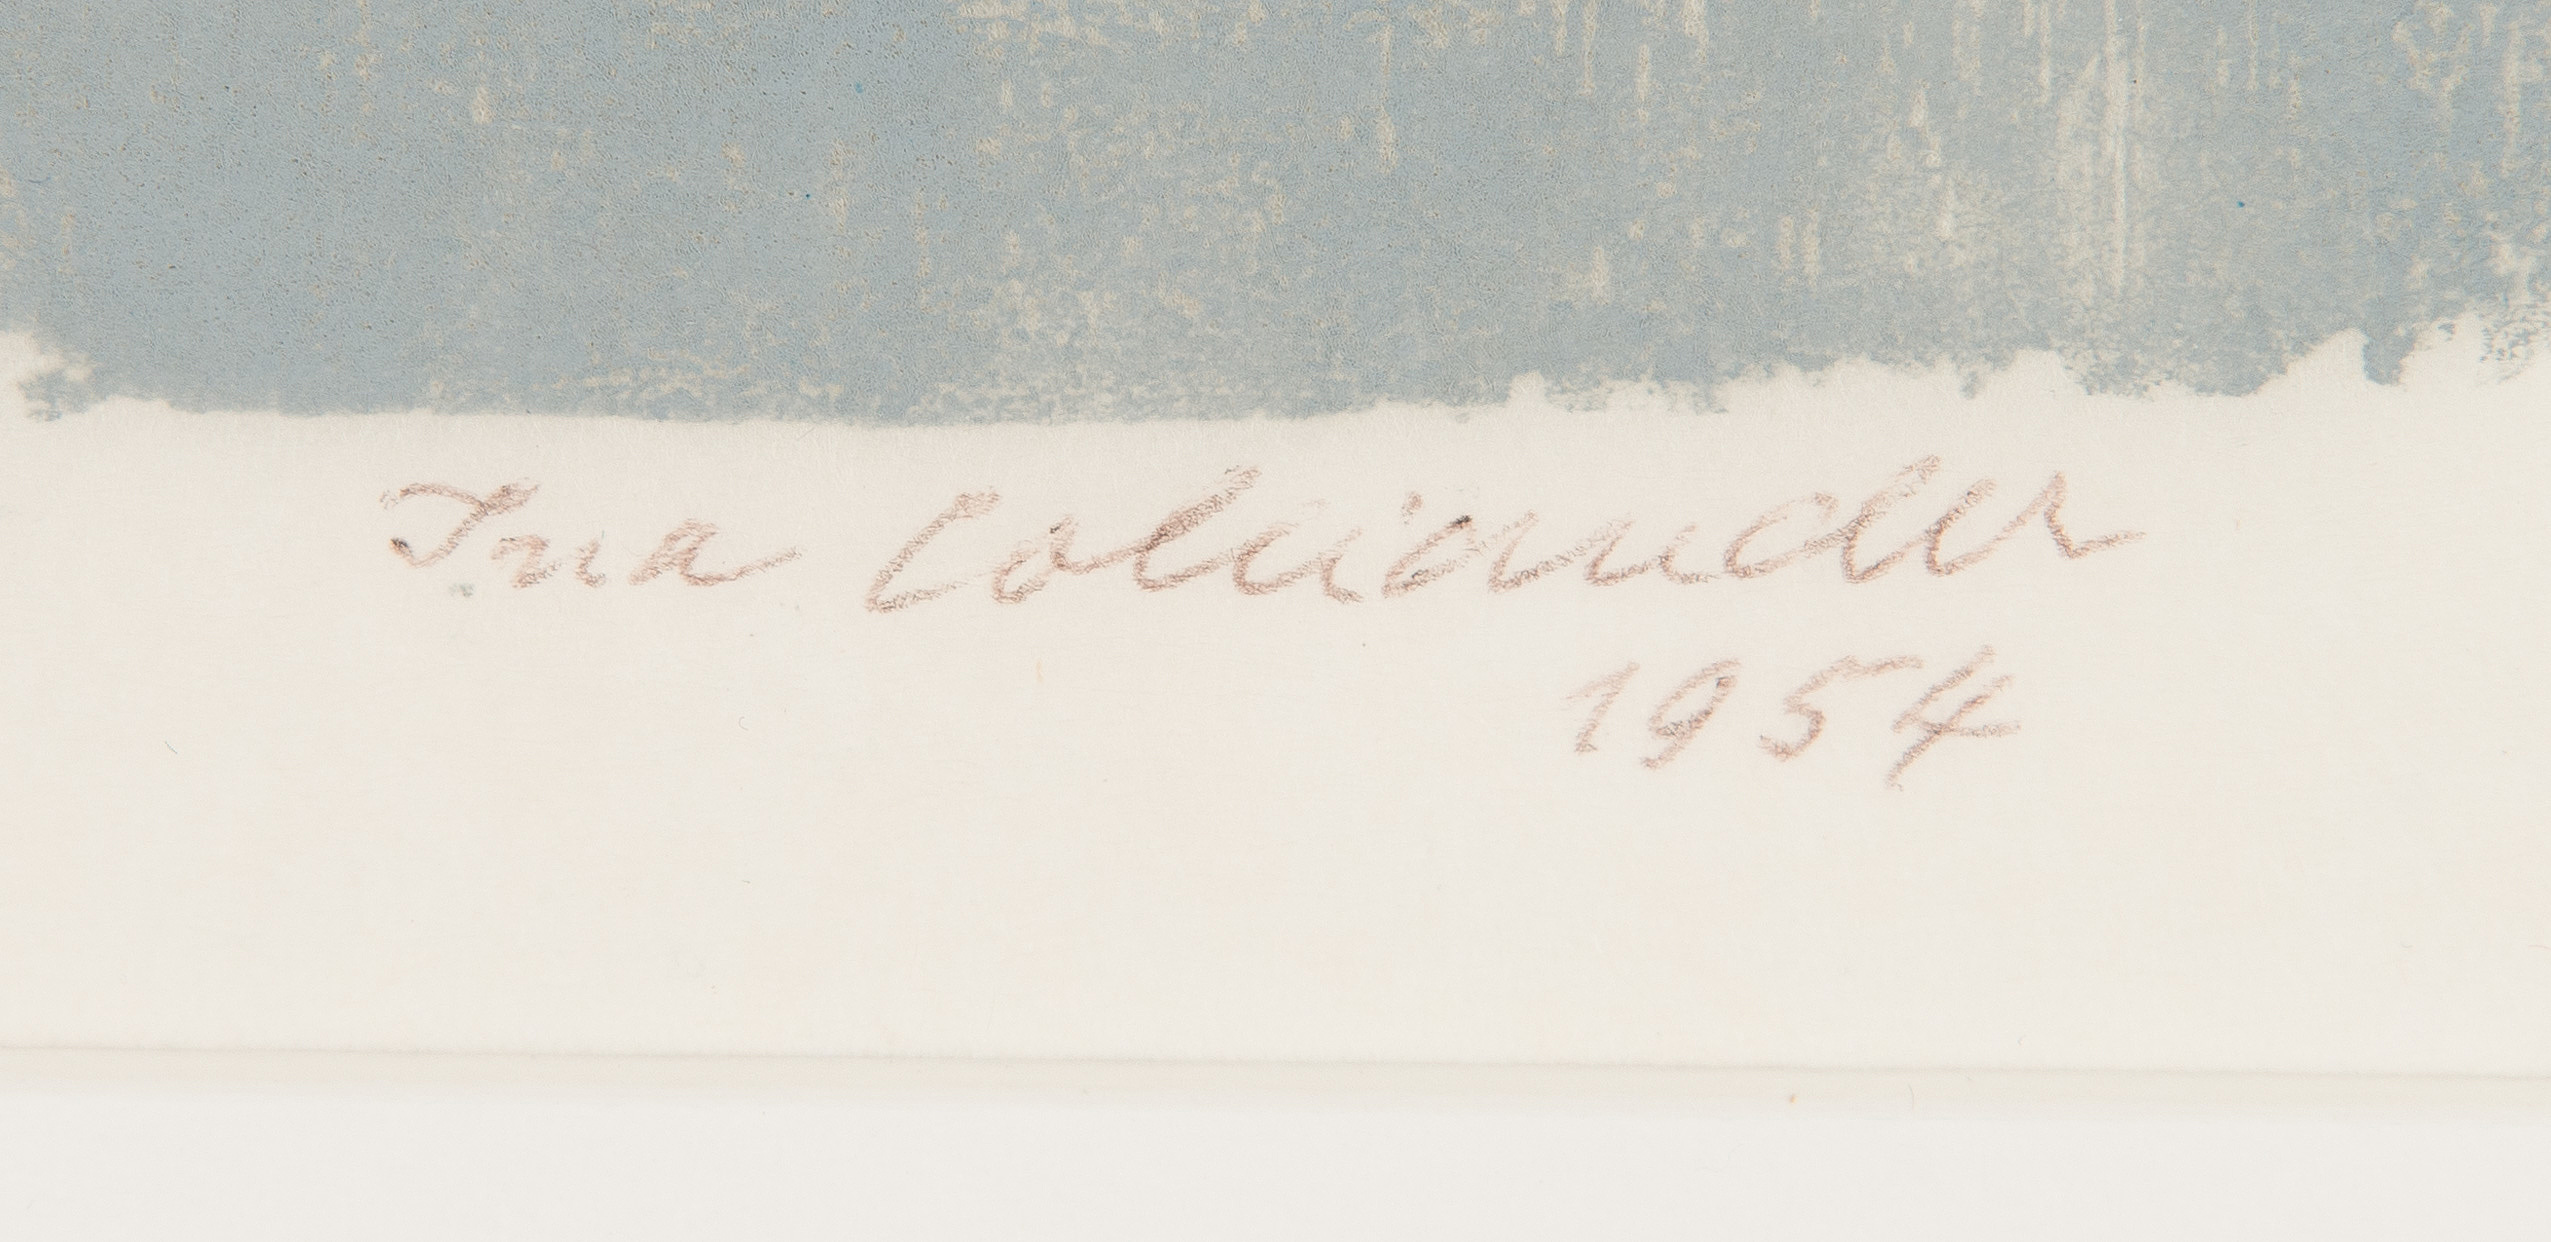 Ina Colliander
1954